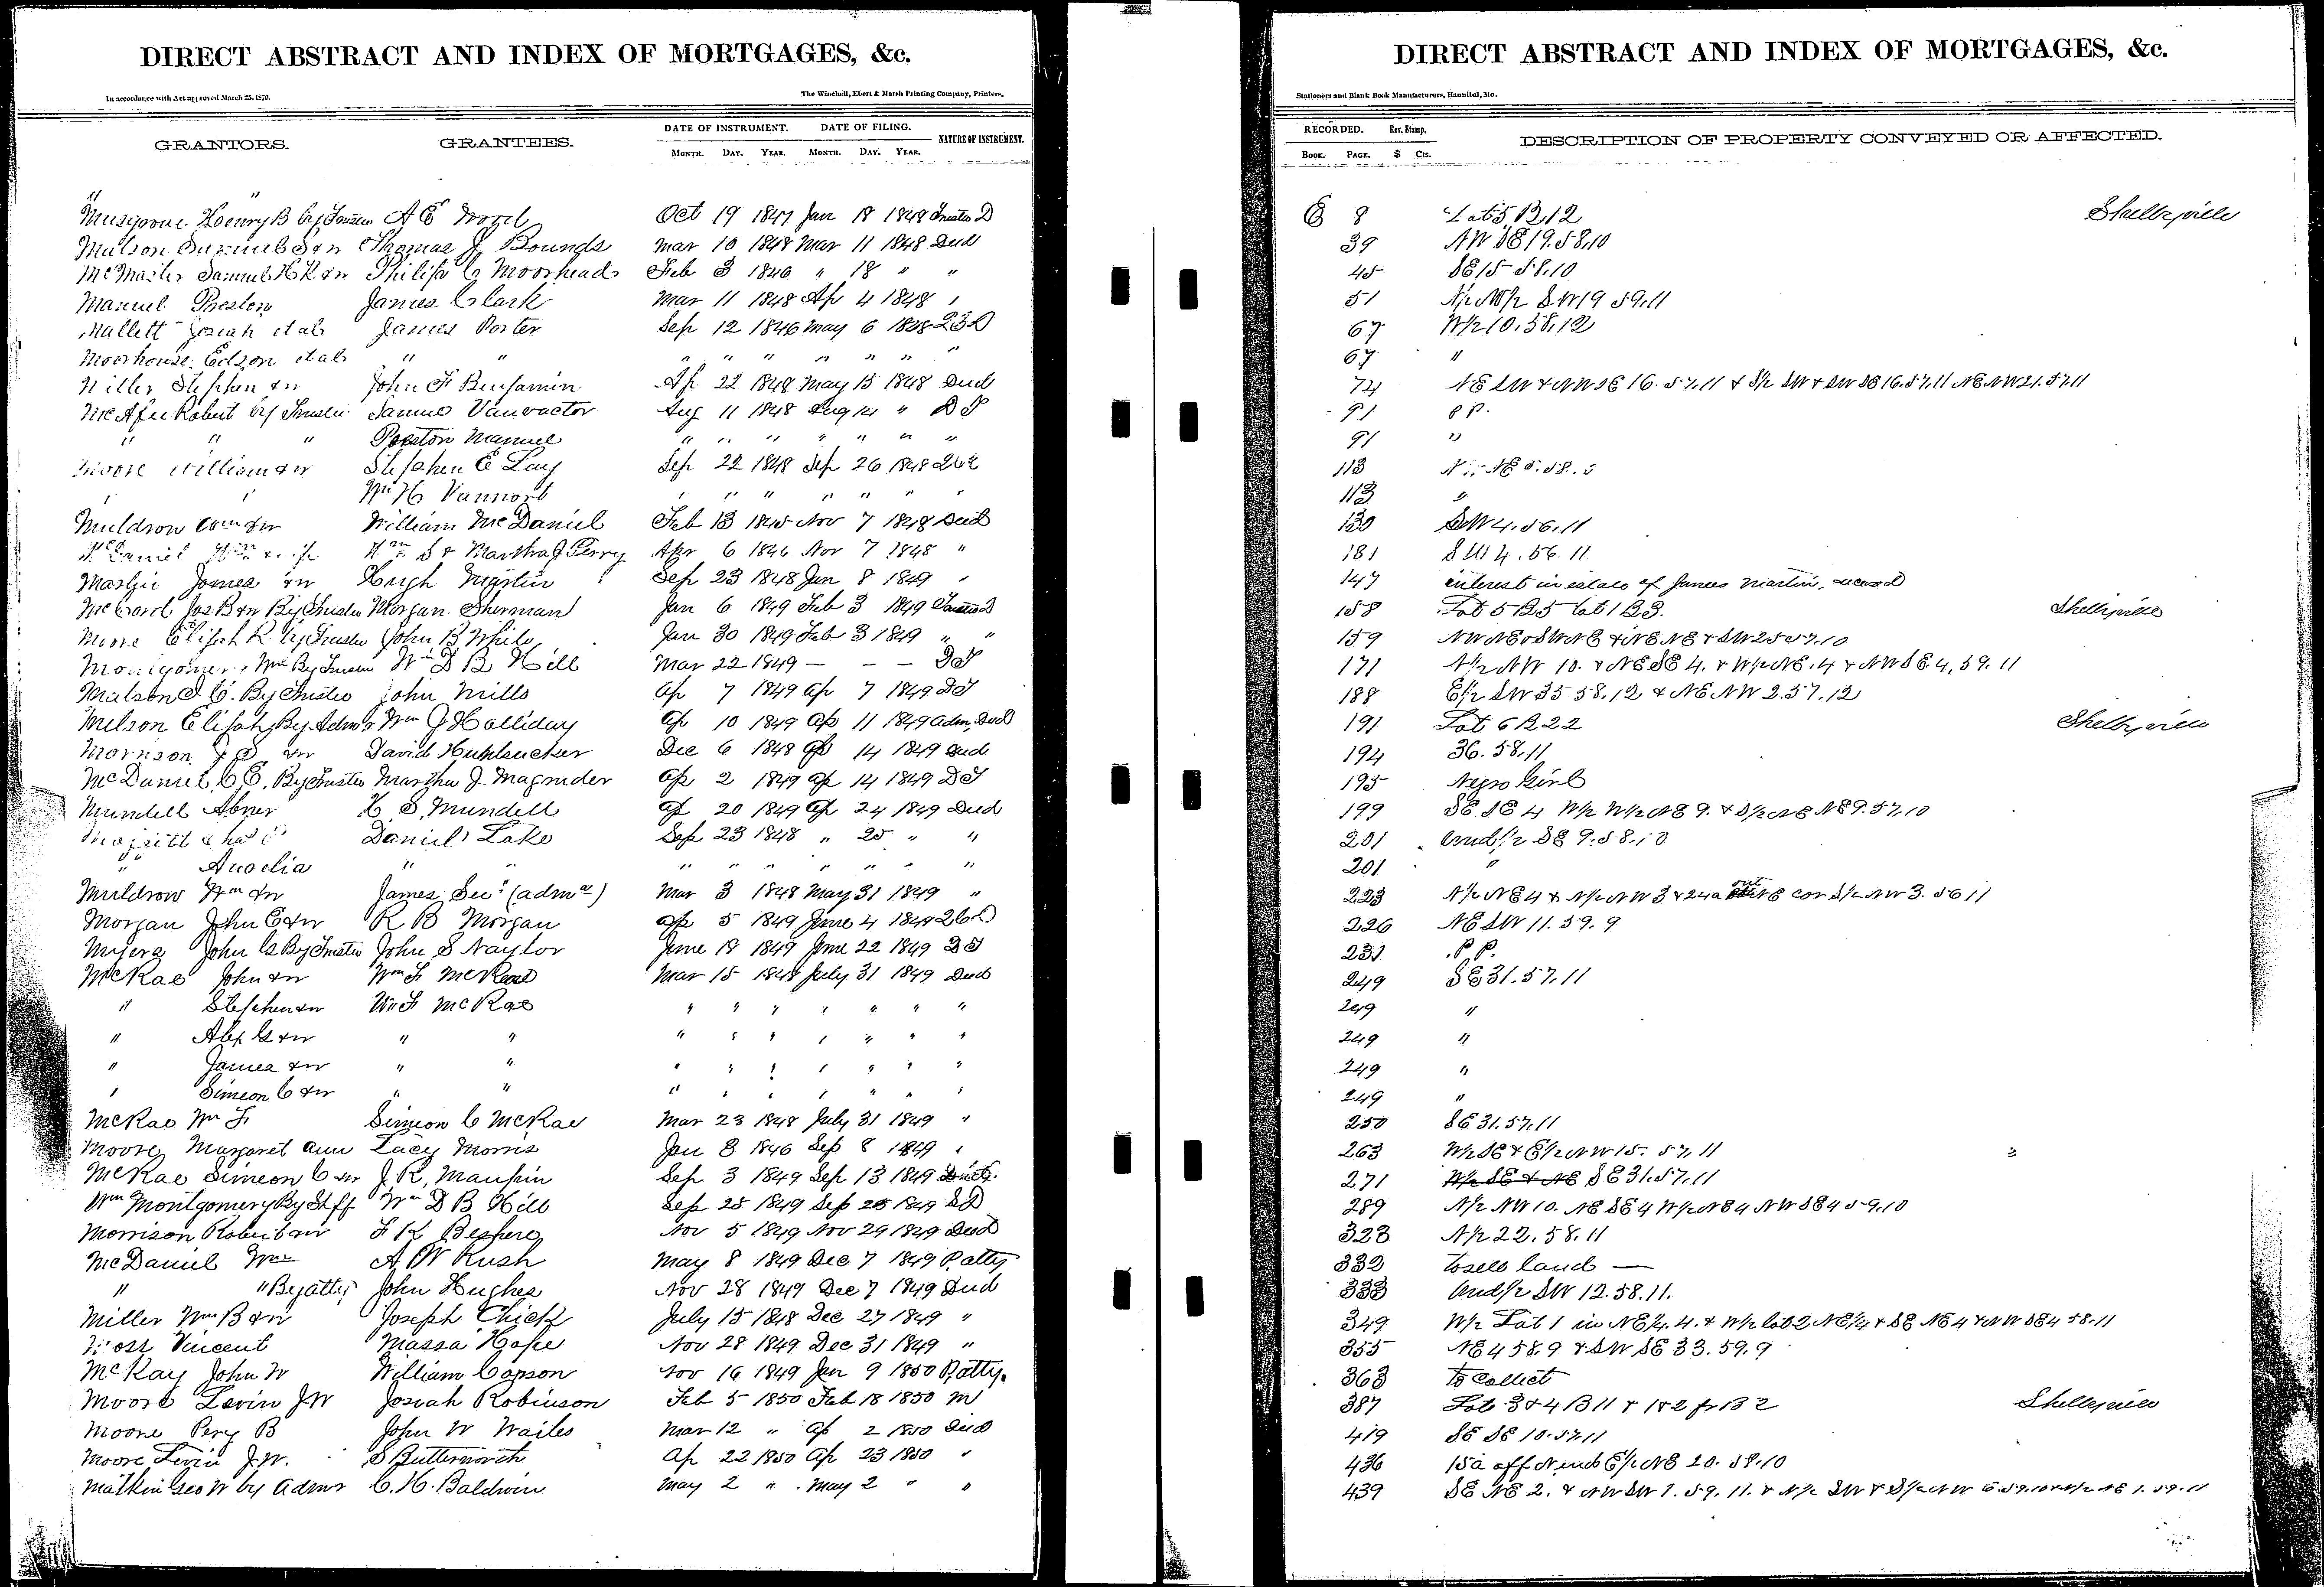 DIRECT ABSTRACT AND INDEX OF MORTGAGES, &c.
In accordance with Act approved March 25, 1870.
The Winchell, Ebert & Marsh Printing Company, Printers,
GRANTORS. GRANTEES. DATE OF INSTRUMENT. DATE OF FILING. NATURE OF INSTRUMENT.
MONTH. DAY. YEAR. MONTH. DAY. YEAR.
" "
Musgrove Henry B by Trustee A E Wood Oct 19 1847 Jan 18 1848 Trustee D
Matson &w Thomas J Bounds Mar 10 1848 Mar 11 1848 Deed
McMaster Samuel H K &w Philip C Moorhead Feb 3 1846 " 18 " "
Manuel Preston James Clark Mar 11 1848 Ap 4 1848 "
Mallett Josiah et als James Porter Sep 12 1846 May 6 1848
Moorhouse Edson et als " " " " " " " " "
Miller Stephen &w John F Benjamin Ap 22 1848 May 15 1848 Deed
McAfee Robert by Trustee Samuel Vanvactor Aug 11 1848 Aug 14 " D T
" " " Preston Manuel " " " " " " "
Moore William &w Stephen E Lay Sep 22 1848 Sep 26 1848
" " Wm H Vannort " " " " " " "
Muldrow Wm &w William McDaniel Feb 13 1845 Nov 7 1848 Deed
McDaniel Wm & wife Wm S & Martha J Perry Apr 6 1846 Nov 7 1848 "
Martin James &w Hugh Martin Sep 23 1848 Jan 8 1849 "
McCord Jas B &w By Trustee Morgan Sherman Jan 6 1849 Feb 3 1849 Trustee D
Moore Elijah R by Trustee John B White Jan 30 1849 Feb 3 1849 " "
Montgomery Wm By Trustee Wm D B Hill Mar 22 1849 — — — D T
Matson J C. By Trustee John Mills Ap 7 1849 Ap 7 1849 D T
Melson Elijah By Admr Wm J Holliday Ap 10 1849 Ap 11 1849 Adm. Deed
Morrison J D &w David Huhlsucker Dec 6 1848 Ap 14 1849 Deed
McDaniel, C E, By Trustee Martha J Magruder Ap 2 1849 Ap 14 1849 D T
Mundell Abner H S Mundell Ap 20 1849 Ap 24 1849 Deed
Daniel Lake Sep 23 1848 " 25 " "
" Aurelia " " " " " " " " "
Muldrow Wm &w James (admr) Mar 3 1848 May 31 1849 "
Morgan John E &w R B Morgan Ap 5 1849 June 4 1849
Myers John C By Trustee John S Naylor June 19 1849 June 22 1849 D T
McRae John &w Wm F McRae Mar 15 1848 July 31 1849 Deed
" Stephen &w Wm F McRae " " " " " " "
" Alex G &w " " " " " " " " "
" James &w " " " " " " " " "
" Simeon C &w " " " " " " " " "
McRae Wm F Simeon C McRae Mar 23 1848 July 31 1849 "
Moore Margaret Ann Lacy Morris Jan 8 1846 Sep 8 1849 "
McRae Simeon C &w J R, Maupin Sep 3 1849 Sep 13 1849
Wm Montgomery By Shff Wm D B Hill Sep 25 1849 Sep 25 1849 S D
Morrison Robert &w F K Beshere Nov 5 1849 Nov 29 1849 Deed
McDaniel Wm A W Rush May 8 1849 Dec 7 1849 P. Atty
" " By Atty John Hughes Nov 28 1849 Dec 7 1849 Deed
Miller Wm B &w Joseph Chick July 15 1848 Dec 27 1849 "
Moss Vincent Massa Hope Nov 28 1849 Dec 31 1849 "
McKay John W William Carson Nov 16 1849 Jan 9 1850 P. Atty.
Moore Levin J W Josiah Robinson Feb 5 1850 Feb 18 1850 M
Moore Pery B John W Wailes Mar 12 " Ap 2 1850 Deed
Moore Levin J. W. S Butternorth Ap 22 1850 Ap 23 1850 "
Matkin Geo W by Admr C. H. Baldwin May 2 " May 2 " "
DIRECT ABSTRACT AND INDEX OF MORTGAGES, &c.
Stationers and Blank Book Manufacturers, Hannibal, Mo.
RECORDED. Rev. Stamp. DESCRIPTION OF PROPERTY CONVEYED OR AFFECTED.
BOOK. PAGE. $ Cts.
E 8 Lot 5 B 12 Shelbyville
39 NW SE 19.58.10
45 SE 15 58.10
51 N/2 N/2 SW 19 59.11
67 W/2 10.58.12
67 "
74 NE SW & NW SE 16.57.11 & S/2 SW & SW SE 16.57.11 NE NW 21.57.11
91 P P.
91 "
113
113 "
130 SW 4.56.11
131 SW 4.56.11
147 interest in estate of James Martin, deceased
158 Lot 5 B 5 Lot 1 B 3. Shelbyville
159 NW NE & SW NE & NE NE & SW 25 57.10
171 N/2 NW 10. & NE SE 4. & W/2 NE.4 & NW SE 4, 59.11
188 E/2 SW 35 58.12 & NE NW 2.57.12
191 Lot 6 B 22 Shelbyville
194 36.58.11
195 Negro Girl
199 SE SE 4 W/2 W/2 NE 9. & S/2 NE NE 9.57.10
201 Und 1/2 SE 9.58.10
201 "
223 N/2 NE 4 & N/2 NW 3 & 24a out NE cor S/2 NW 3.56 11
226 NE SW 11.59.9
231 P. P.
249 SE 31.57.11
249 "
249 "
249 "
249 "
250 SE 31.57.11
263 W/2 SE & E/2 NW 15. 57.11
271 W/2 SE & NE SE 31.57.11
289 N/2 NW 10. NE SE 4 W/2 NE 4 NW SE 4 59.10
323 N/2 22.58.11
332 to sell land —
333 Und 1/2 SW 12.58.11.
349 W/2 Lot 1 in NE 1/4. 4. & W/2 lot 2 NE 1/4 & SE NE 4 & NW SE 4 58.11
355 NE 4 58.9 & SW SE 33.59.9
363 To Collect
387 Lots 3 & 4 B 11 & 1 & 2 fr B 2 Shelbyville
419 SE SE 10.57.11
436 15a off N end E/2 NE 20. 58.10
439 SE NE 2. & NW SW 1.59.11. & N/2 SW & S/2 NW 6.59.10 & N/2 NE 1.59.11